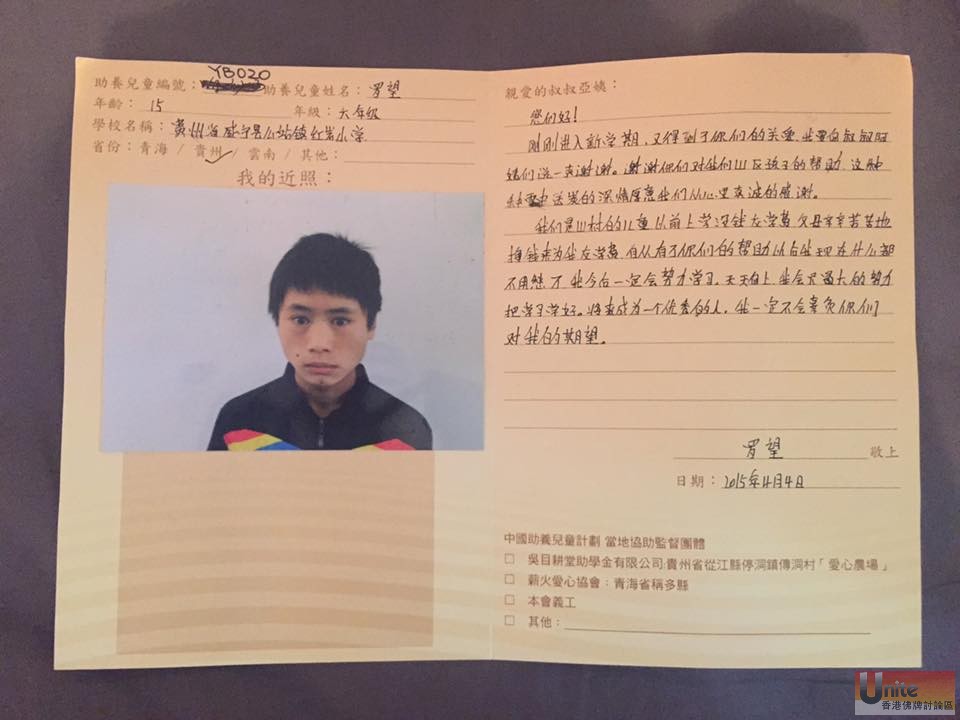 助養兒童編號：YB020 助養兒童姓名：罗望
年齡：15 年級：六年级
學校名稱：贵州省威宁县么站镇红岩小学
省份：青海 / 貴州 / 雲南 / 其他：
我的近照：
親愛的叔叔亞姨：
您们好！
刚刚进入新学期，又得到了你们的关爱，我要向叔叔阿
姨们说一声谢谢。谢谢你们对我们山区孩子的帮助，这种
送炭的深情厚意我们从心里表达的感谢。
我们是山村的儿童以前上学没钱交学费，父母辛辛苦苦地
挣钱来为我交学费，自从有了你们的帮助以后我现在什么都
不用愁了，我今后一定会努力学习，天天向上我会尽最大的努力
把学习学好。将来成为一个优秀的人，我一定不会辜负你们
对我的期望。
罗望 敬上
日期：2015年4月4日
中國助養兒童計劃 當地協助監督團體
□ 吳目耕堂助學金有限公司:貴州省從江縣停洞鎮傳洞村「愛心農場」
□ 薪火愛心協會：青海省稱多縣
□ 本會義工
□ 其他：
Unite
香港佛牌討論區